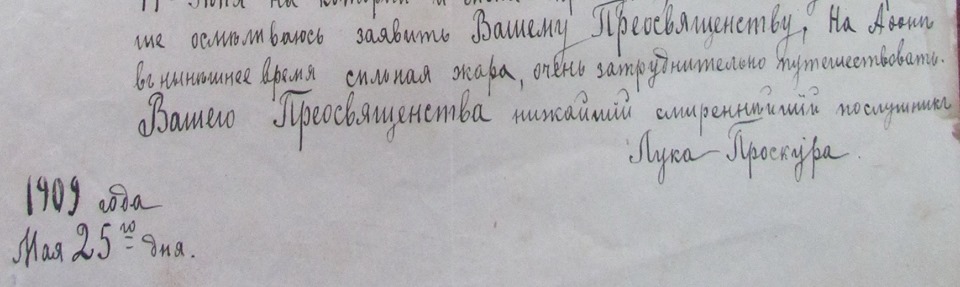 11 Іюня на который и
ше осмѣливаюсь заявить Вашему Преосвященству, на Аѳонѣ
въ нынѣшнее время сильная жара, очень затруднительно путешествовать.
Вашего Преосвященства нижайшій смиреннѣйшій послушникъ
Лука Проскура.
1909 года
Мая 25го дня.